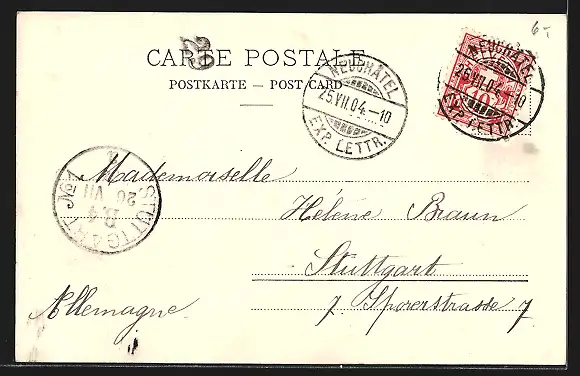 6.-
CARTE POSTALE
POSTKARTE — POST CARD
NEUCHATEL
25.VII.04.-10
EXP. LETTR.
NEUCHATEL
25.VII.04.-10
EXP. LETTR.
10
STUTTGART No 1
26 VII
Mademoiselle
Hélène Braun
Stuttgart
7 Sporerstrasse 7
Allemagne